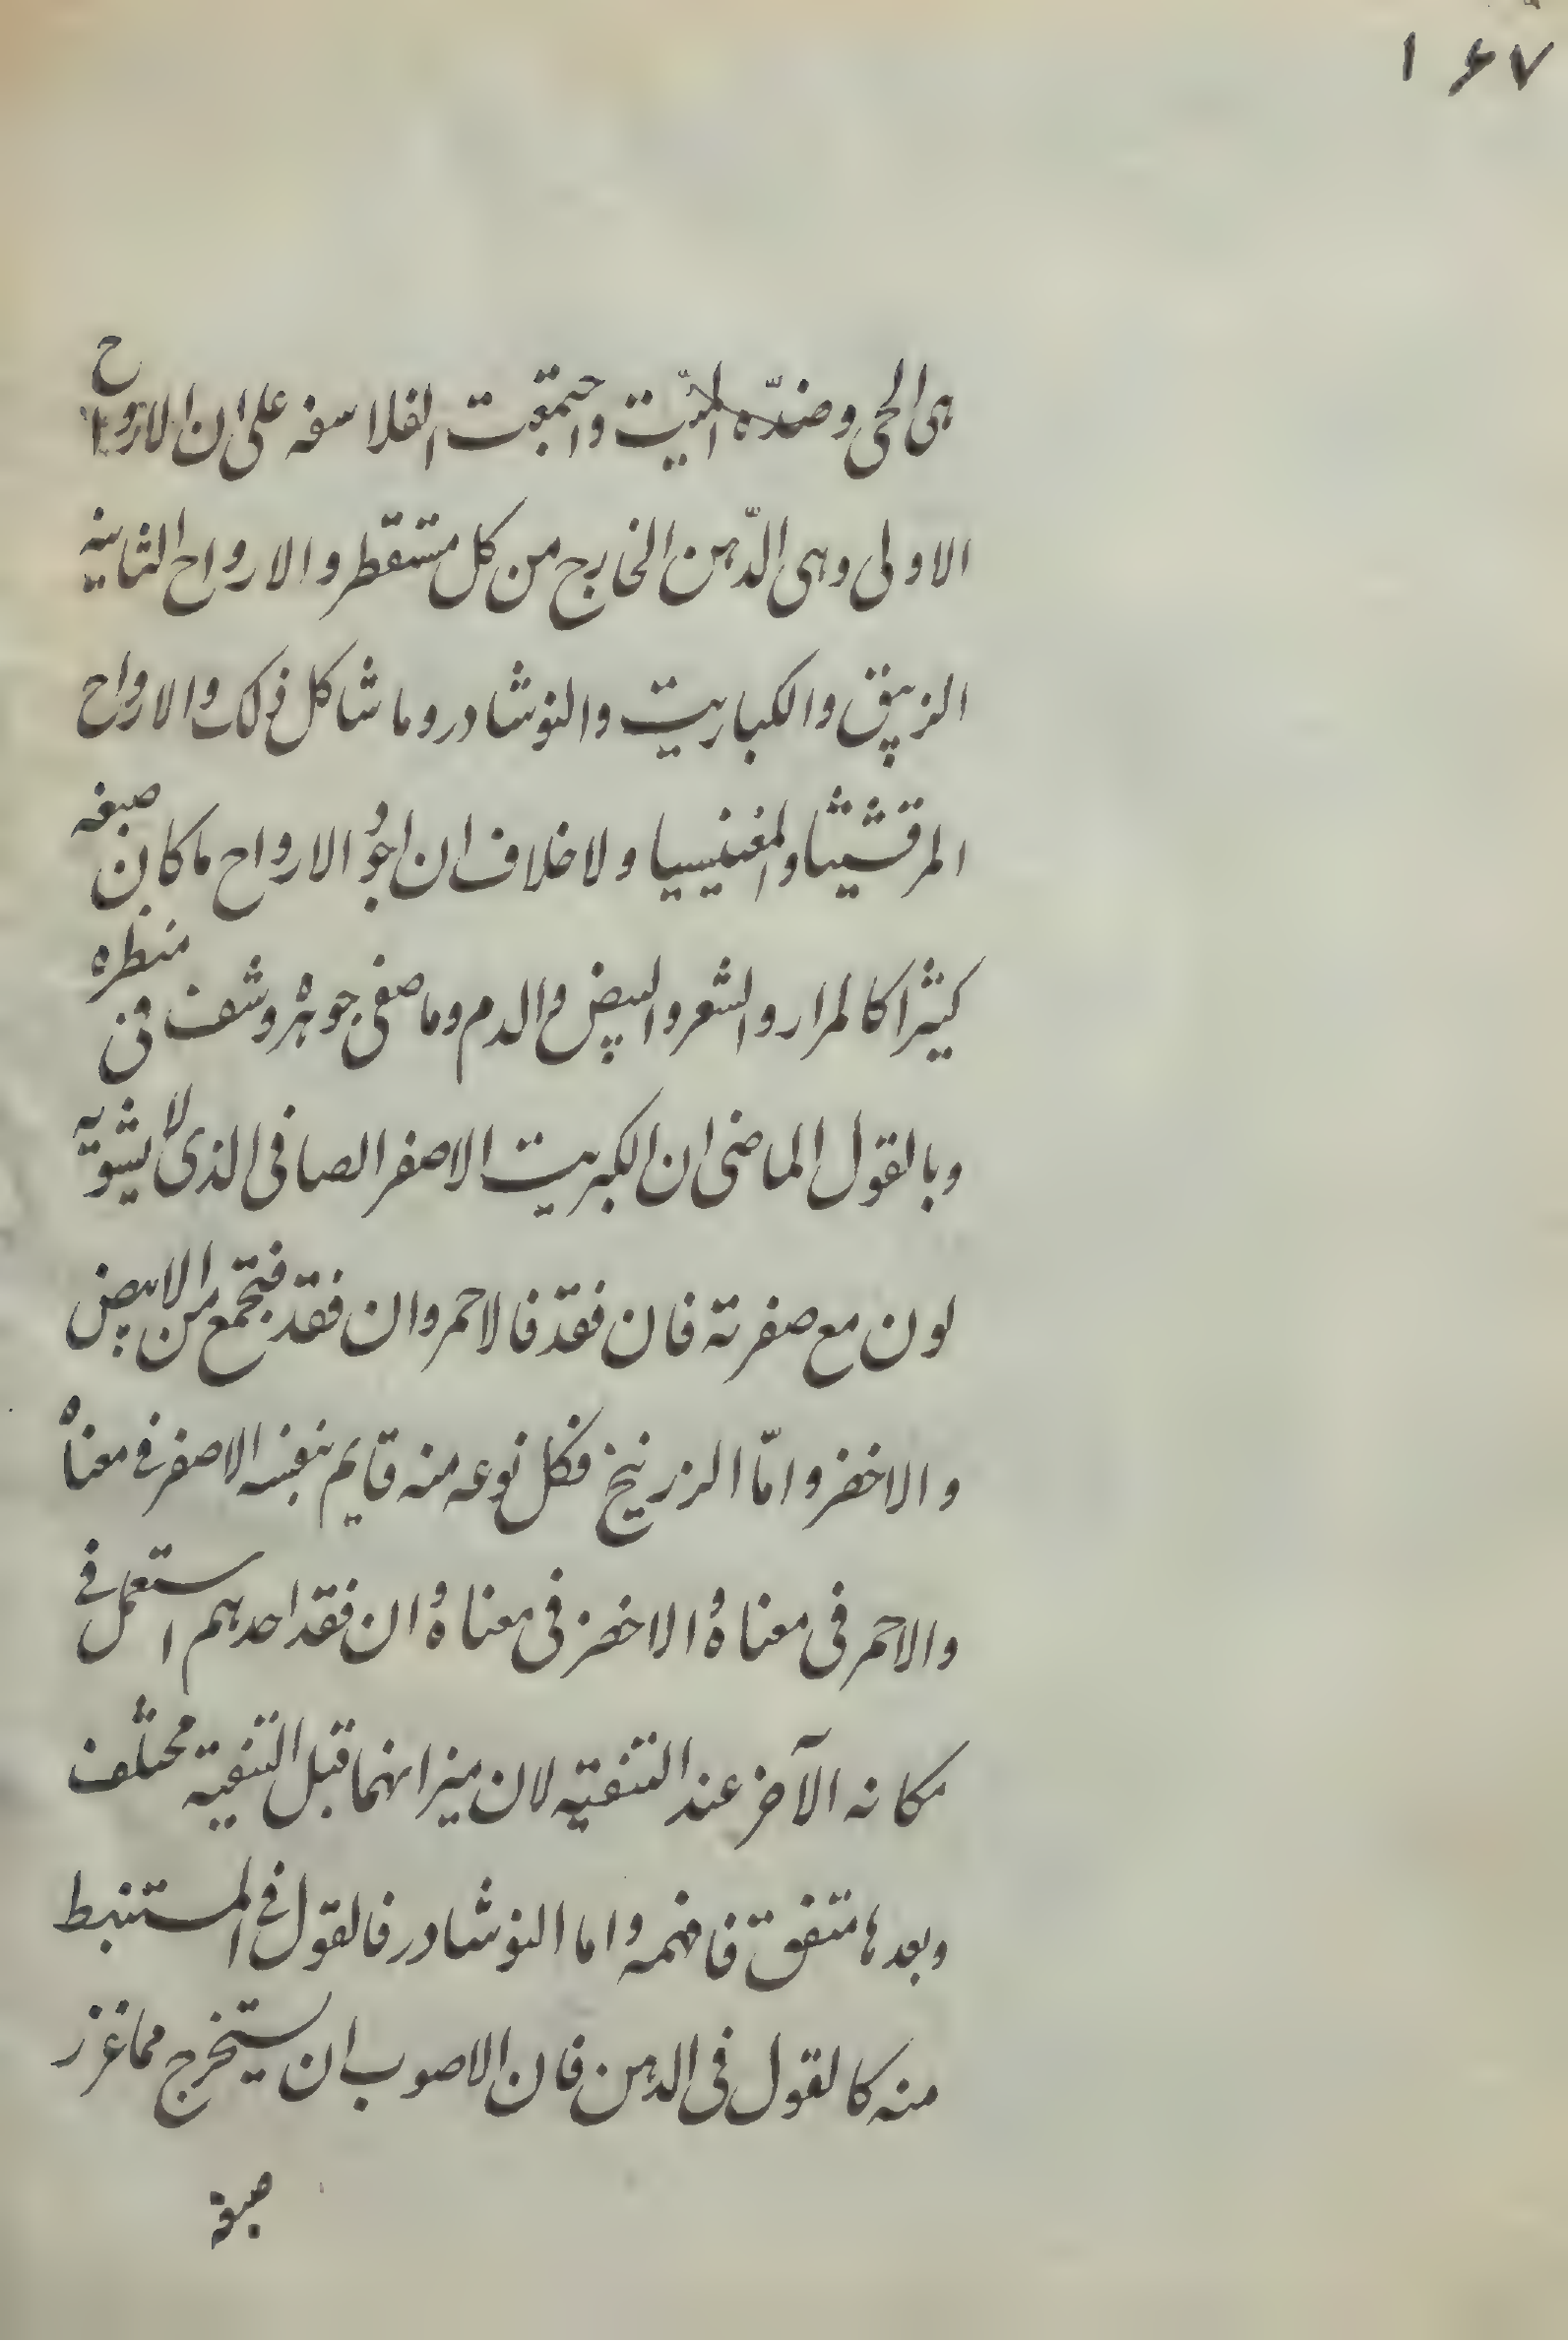 ١٦٧
هى الحى وضدّه الميّت واجتمعت الفلاسفه على ان الارواح
الاولى وهى الدّهن الخارج من كل متقطر والارواح الثانيه
الزيبق والكباريت والنوشادر وما شاكل ذلك والارواح
المرقشيثا والمغنيسيا ولا خلاف ان اجود الارواح ما كان صبغه
كثيرا كالمرار والشعر والبيض والدم وما صفى جوهره وشف فى منظره
وبالقول الماضى ان الكبريت الاصفر الصافى الذى لا يشوبه
لون مع صفرته فان فقد فالاحمر وان فقد فتجمع من الابيض
والاخضر وامّا الزرنيخ فكل نوعه منه قايم بنفسه الاصفر فى معناه
والاحمر فى معناه والاخضر فى معناه وان فقد احدهم استعمل فى
مكانه الآخر عند التنقيه لان ميزانهما قبل التنقيه مختلف
وبعدها متفق فافهمه واما النوشادر فالقول فى المستنبط
منه كالقول فى الدهن فان الاصوب ان يستخرج مما غزر
صبغه